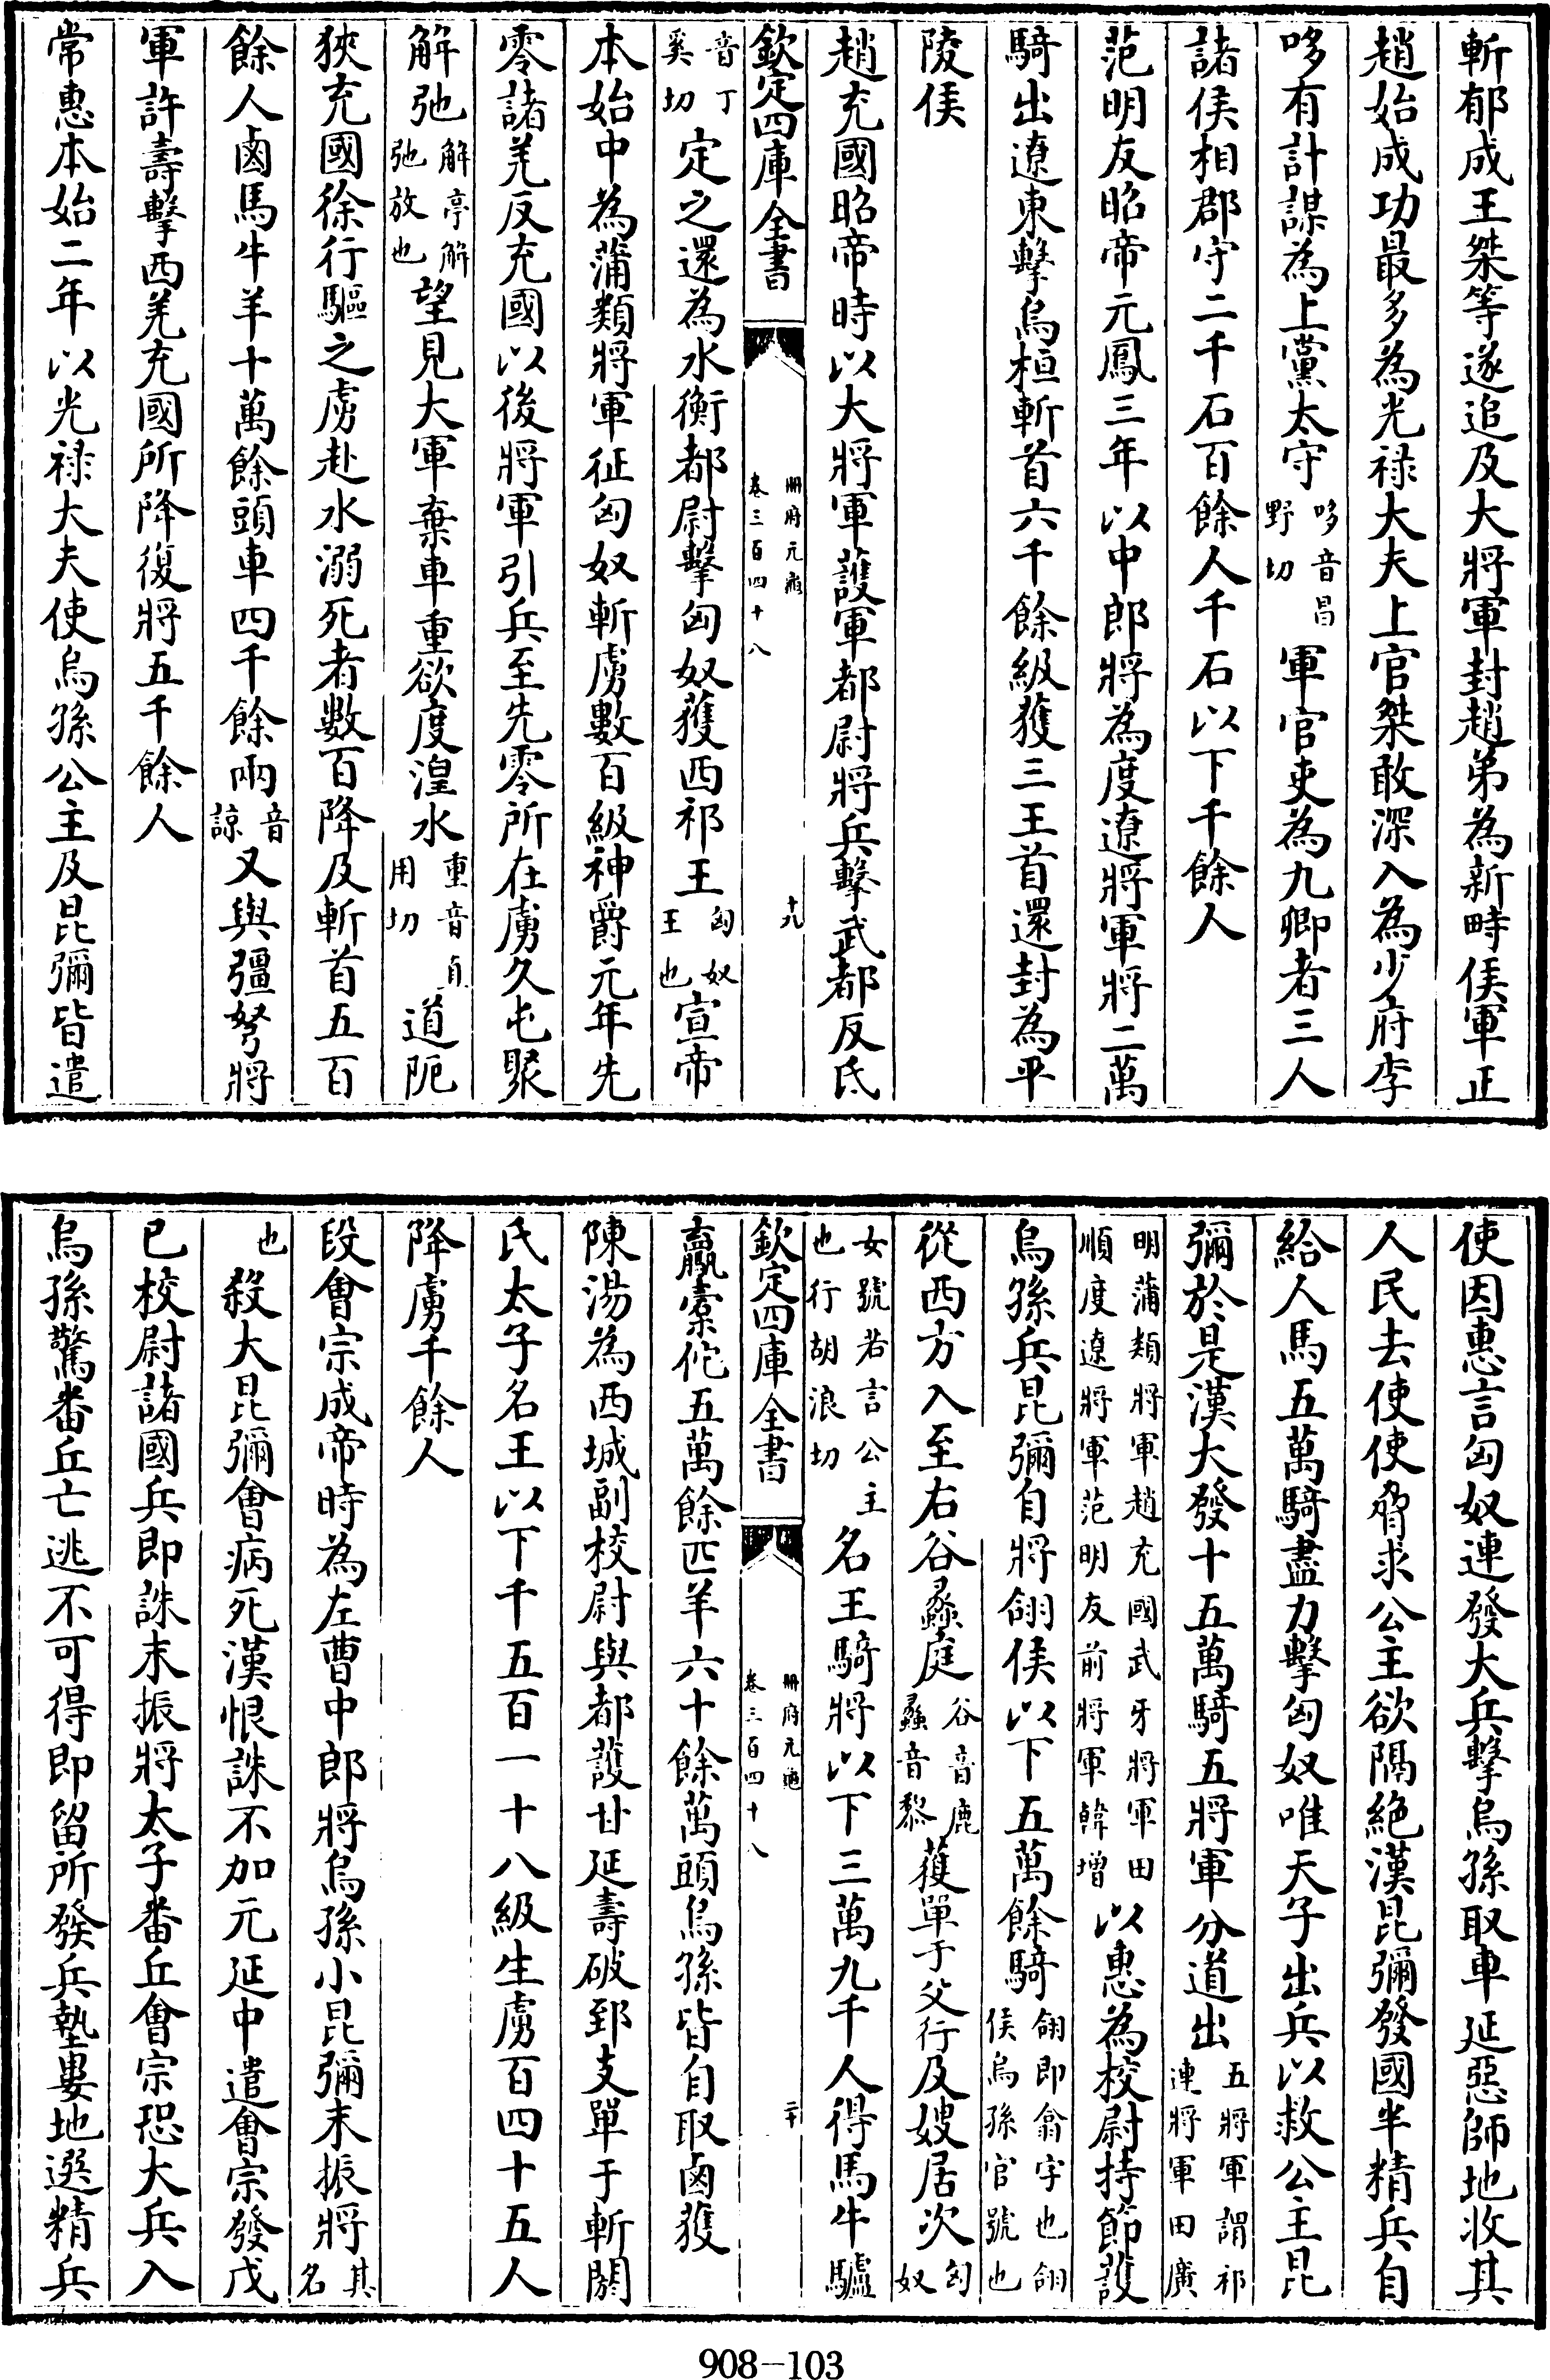 斬郁成王桀等遂追及大將軍封趙弟為新畤侯軍正
趙始成功最多為光禄大夫上官桀敢深入為少府李
哆有計謀為上黨太守哆音昌野切軍官吏為九卿者三人
諸侯相郡守二千石百餘人千石以下千餘人
范明友昭帝元鳳三年以中郎將為度遼將軍將二萬
騎出遼東擊烏桓斬首六千餘級獲三王首還封為平
陵侯
趙充國昭帝時以大將軍護軍都尉將兵擊武都反氐
欽定四庫全書 冊府元龜卷三百四十八 十九
音丁奚切定之還為水衡都尉擊匈奴獲西祁王匈奴王也宣帝
本始中為蒲類將軍征匈奴斬虜數百級神爵元年先
零諸羌反充國以後將軍引兵至先零所在虜久屯聚
解弛解亭解弛放也望見大軍棄車重欲度湟水重音直用切道阨
狹充國徐行驅之虜赴水溺死者數百降及斬首五百
餘人鹵馬牛羊十萬餘頭車四千餘兩音諒又與彊弩將
軍許壽擊西羌充國所降復將五千餘人
常惠本始二年以光禄大夫使烏孫公主及昆彌皆遣
使因惠言匈奴連發大兵擊烏孫取車延惡師地收其
人民去使使脅求公主欲隔絶漢昆彌發國半精兵自
給人馬五萬騎盡力擊匈奴唯天子出兵以救公主昆
彌於是漢大發十五萬騎五將軍分道出五將軍謂祁連將軍田廣
明蒲類將軍趙充國武牙將軍田順度遼將軍范明友前將軍韓增以惠為校尉持節護
烏孫兵昆彌自將翖侯以下五萬餘騎翖即翕字也翖侯烏孫官號也
從西方入至右谷蠡庭谷音鹿蠡音黎獲單于父行及嫂居次匈奴
女號若言公主也行胡浪切名王騎將以下三萬九千人得馬牛驢
欽定四庫全書 冊府元龜卷三百四十八 二十
驘橐佗五萬餘匹羊六十餘萬頭烏孫皆自取鹵獲
陳湯為西城副校尉與都護甘延壽破郅支單于斬閼
氏太子名王以下千五百一十八級生虜百四十五人
降虜千餘人
段會宗成帝時為左曹中郎將烏孫小昆彌末振將其名
也殺大昆彌會病死漢恨誅不加元延中遣會宗發戊
已校尉諸國兵即誅末振將太子番丘會宗恐大兵入
烏孫驚番丘亡逃不可得即留所發兵墊婁地選精兵
908-103